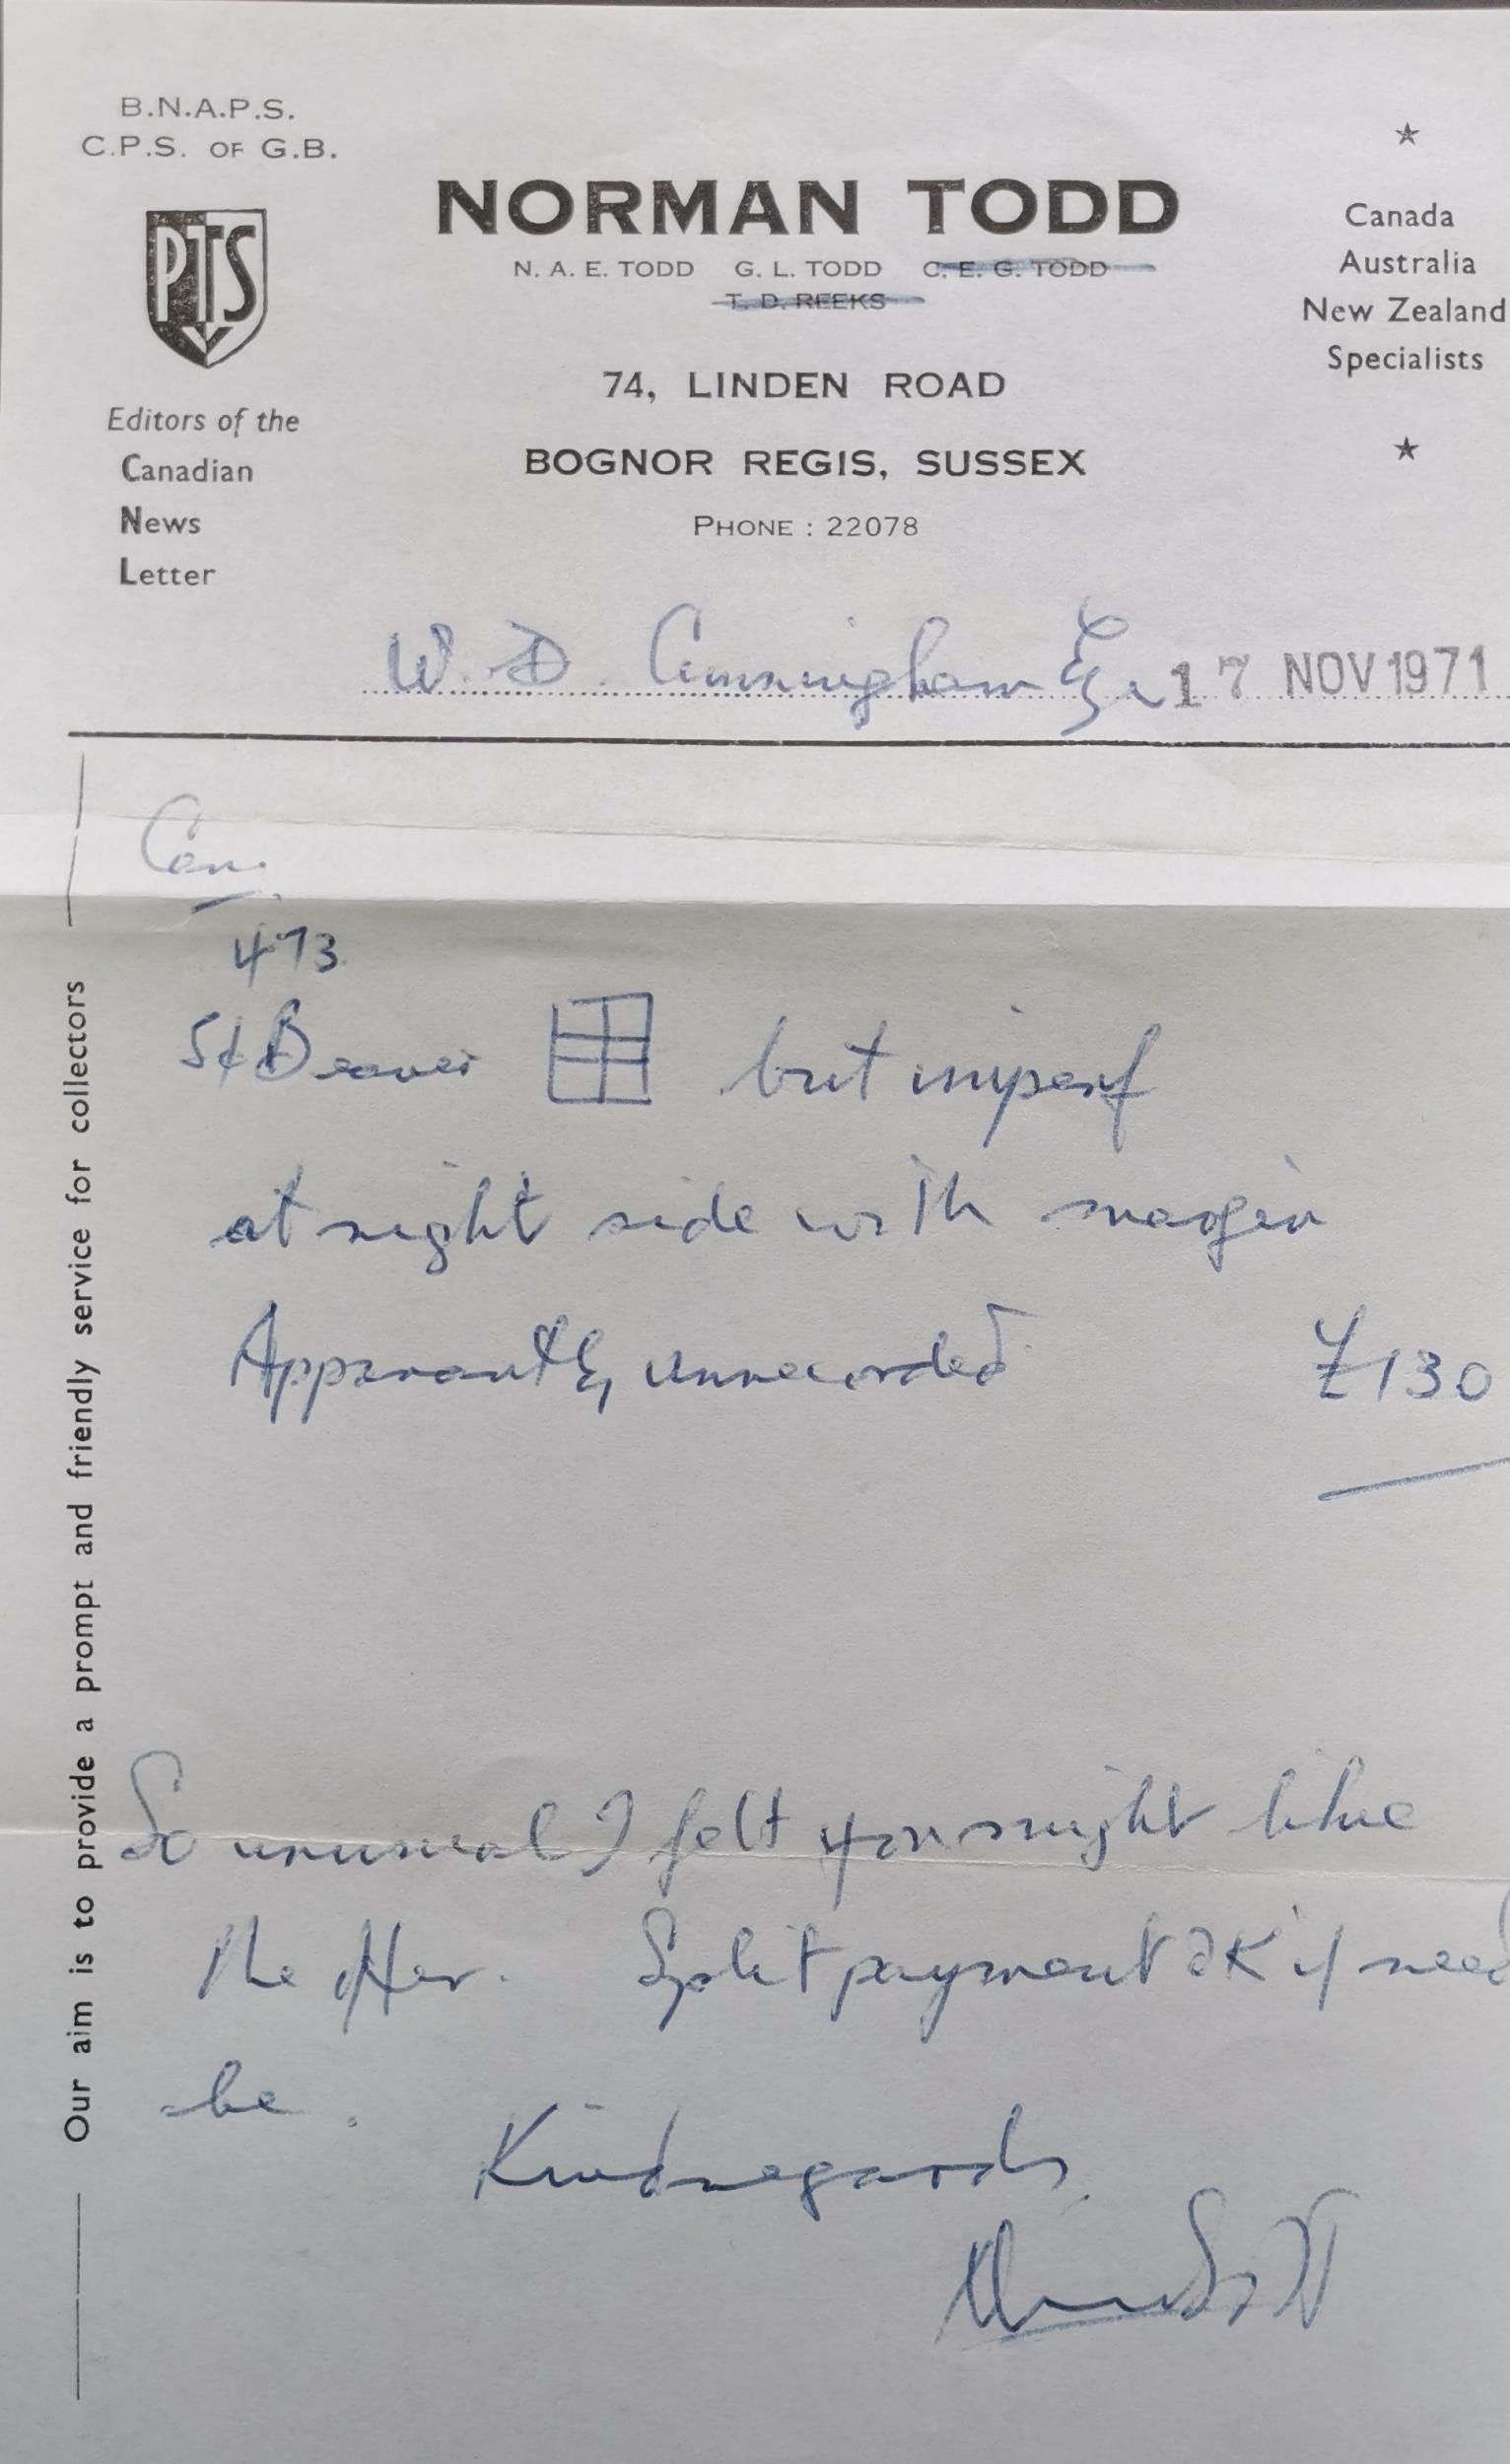 B.N.A.P.S.
C.P.S. OF G.B.
PTS
Editors of the
Canadian
News
Letter
NORMAN TODD
N. A. E. TODD G. L. TODD C. E. G. TODD
T. D. REEKS
74, LINDEN ROAD
BOGNOR REGIS, SUSSEX
PHONE : 22078
★
Canada
Australia
New Zealand
Specialists
★
W. D. Cunningham Esq 17 NOV 1971
Our aim is to provide a prompt and friendly service for collectors
Can.
473
5¢ Beaver but imperf
at right side with margin
Apparently unrecorded £130
So unusual I felt you might like
the offer. Split payment OK if need
be.
Kind regards